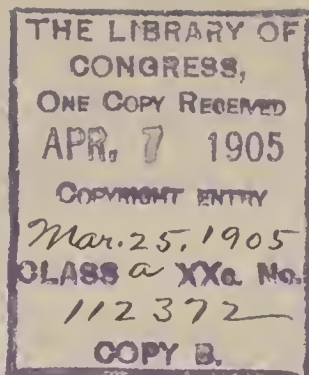 THE LIBRARY OF
CONGRESS,
ONE COPY RECEIVED
APR. 7 1905
COPYRIGHT ENTRY
Mar. 25, 1905
CLASS a XXc. No.
112372
COPY B.